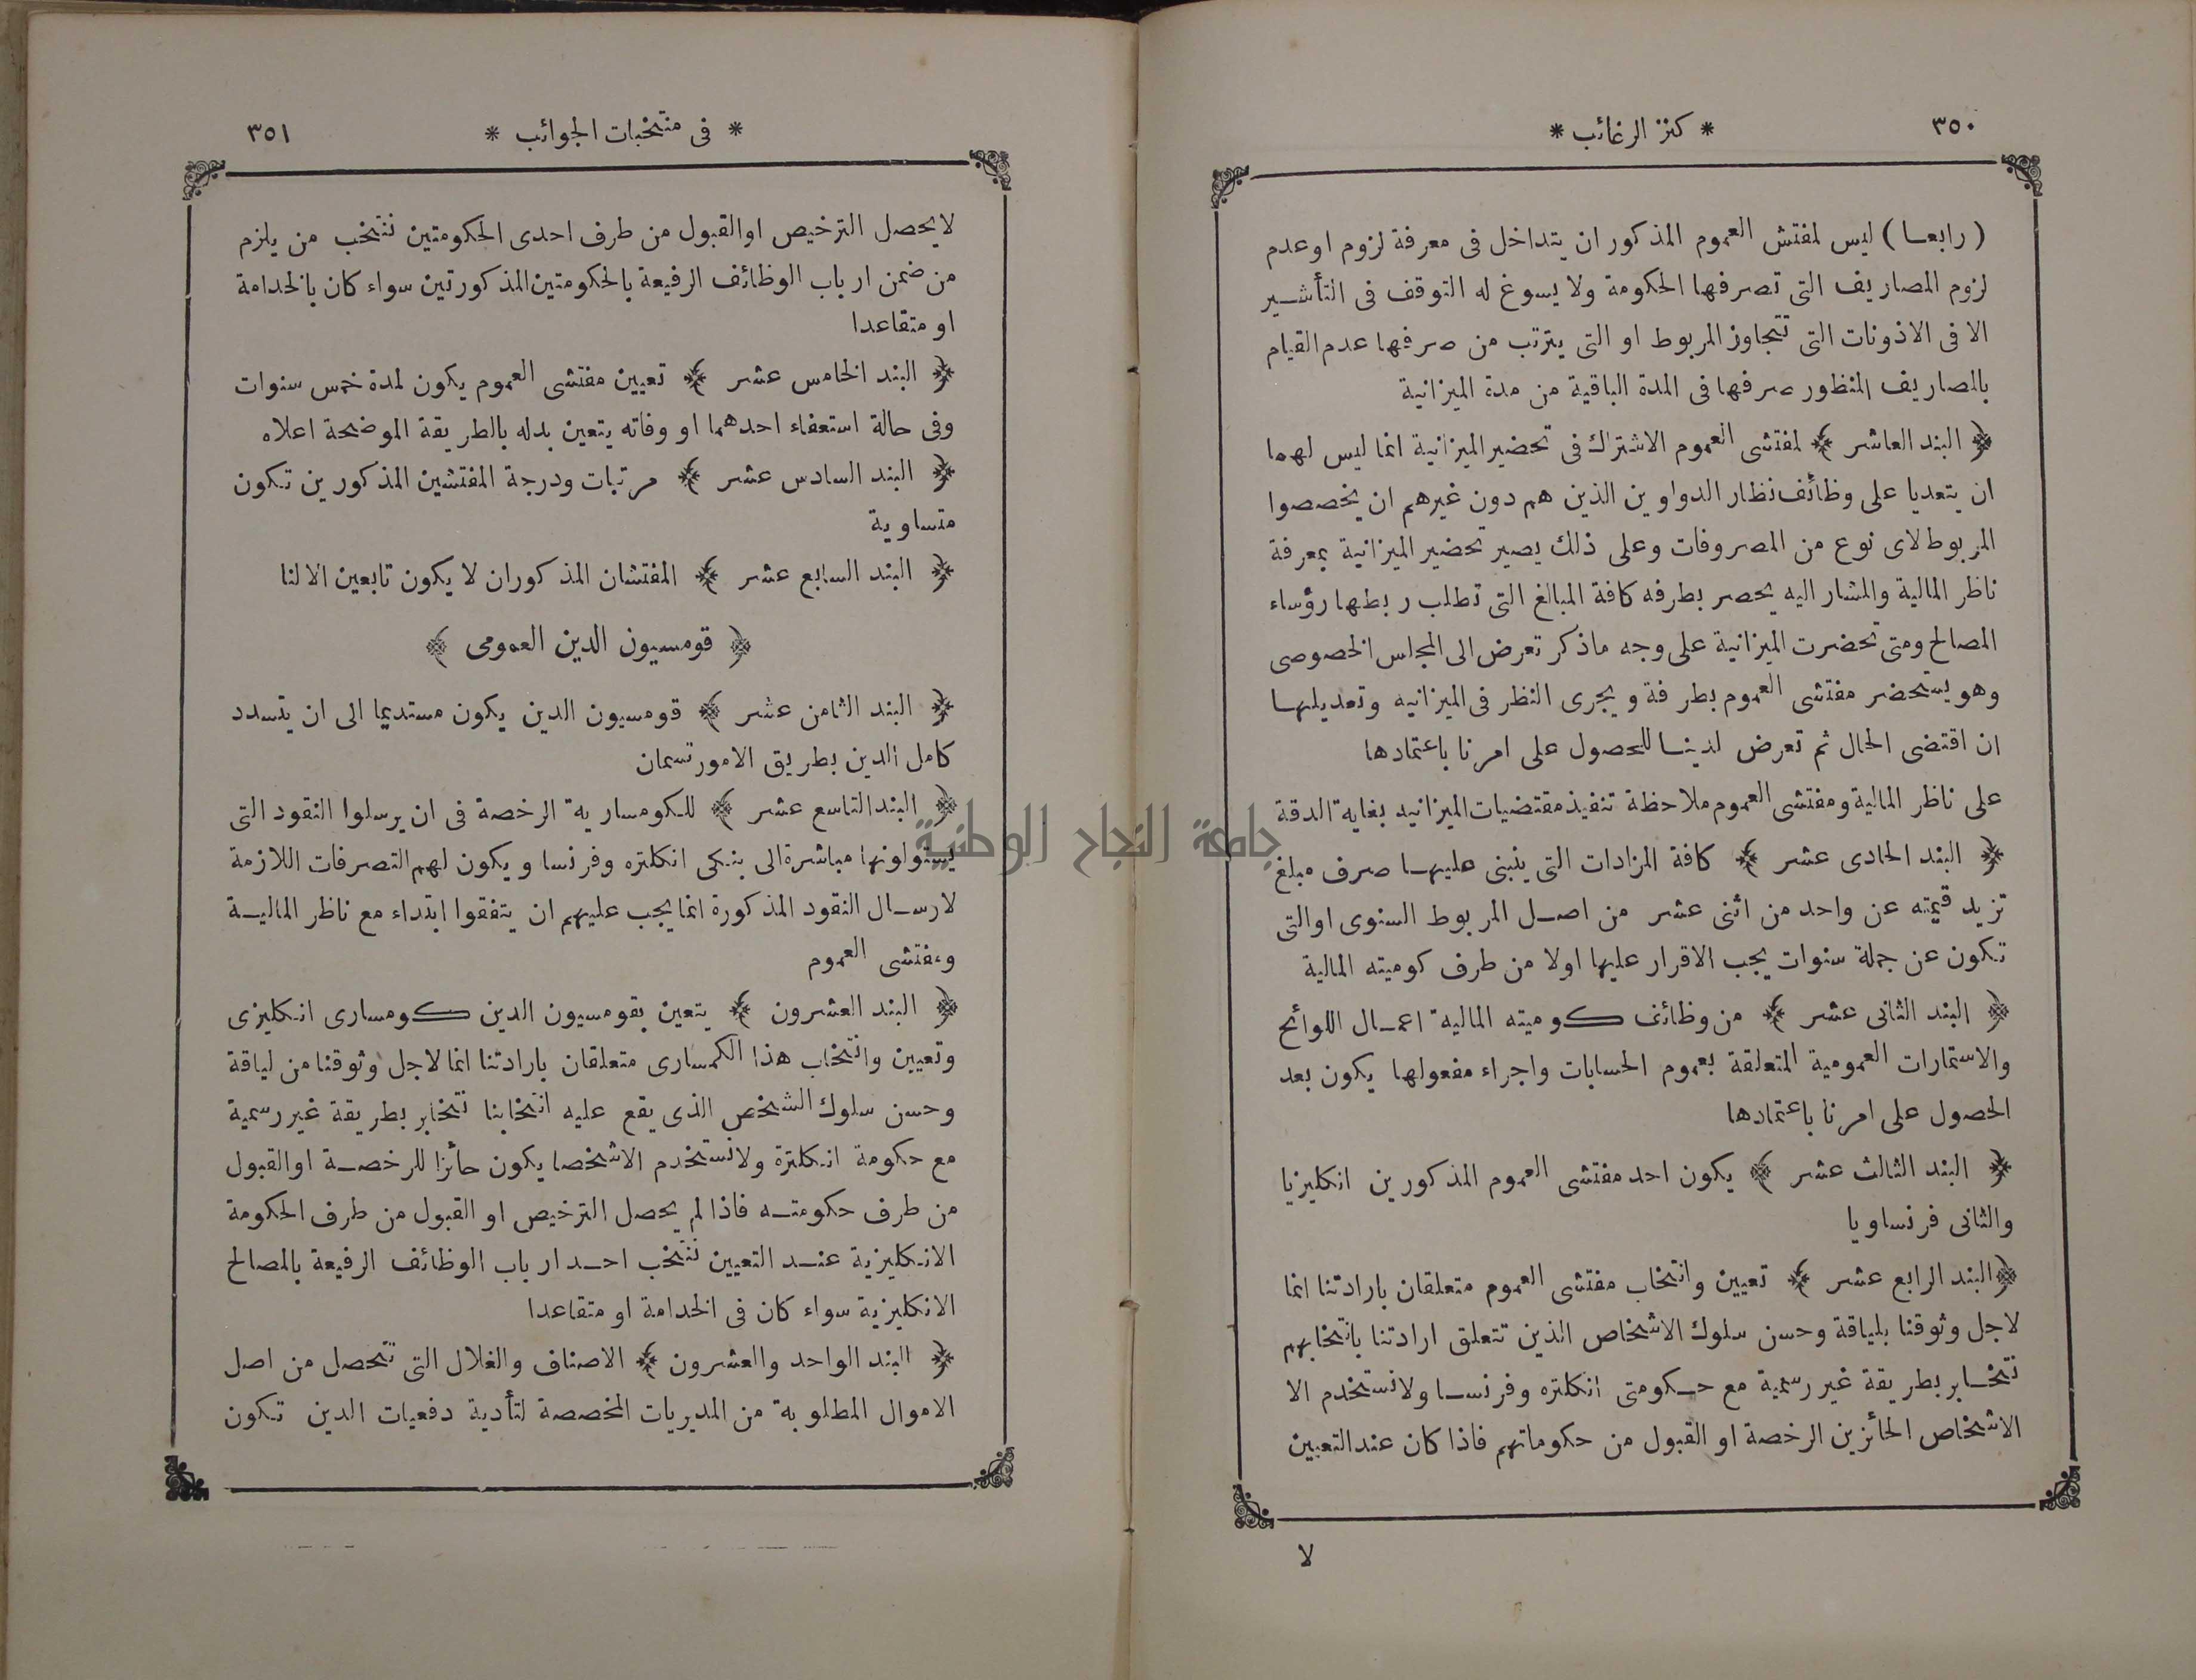 ٣٥٠
* كنز الرغائب *
(رابعا) ليس لمفتش العموم المذكور ان يتداخل فى معرفة لزوم او عدم
لزوم المصاريف التى تصرفها الحكومة ولا يسوغ له التوقف فى التأشير
الا فى الاذونات التى تتجاوز المربوط او التى يترتب من صرفها عدم القيام
بالمصاريف المنظور صرفها فى المدة الباقية من مدة الميزانية
﴿ البند العاشر ﴾ لمفتشى العموم الاشتراك فى تحضير الميزانية انما ليس لهما
ان يتعديا على وظائف نظار الدواوين الذين هم دون غيرهم ان يخصصوا
المربوط لاى نوع من المصروفات وعلى ذلك يصير تحضير الميزانية بمعرفة
ناظر المالية والمشار اليه يحصر بطرفه كافة المبالغ التى تطلب ربطها رؤساء
المصالح ومتى تحضرت الميزانية على وجه ماذكر تعرض الى المجلس الخصوصى
وهو يستحضر مفتشى العموم بطرفة ويجرى النظر فى الميزانيه وتعديلها
ان اقتضى الحال ثم تعرض لدينا للحصول على امرنا باعتمادها
على ناظر المالية ومفتشى العموم ملاحظة تنفيذ مقتضيات الميزانيه بغاية الدقة
﴿ البند الحادى عشر ﴾ كافة المزادات التى ينبنى عليها صرف مبلغ
تزيد قيمته عن واحد من اثنى عشر من اصل المربوط السنوى اوالتى
تكون عن جملة سنوات يجب الاقرار عليها اولا من طرف كوميته المالية
﴿ البند الثانى عشر ﴾ من وظائف كوميته الماليه اعمال اللوائح
والاستمارات العمومية المتعلقة بعموم الحسابات واجراء مفعولها يكون بعد
الحصول على امرنا باعتمادها
﴿ البند الثالث عشر ﴾ يكون احد مفتشى العموم المذكورين انكليزيا
والثانى فرنساويا
﴿ البند الرابع عشر ﴾ تعيين وانتخاب مفتشى العموم متعلقان بارادتنا انما
لاجل وثوقنا بلياقة وحسن سلوك الاشخاص الذين تتعلق ارادتنا بانتخابهم
نتخابر بطريقة غير رسمية مع حكومتى انكلتره وفرنسا ولانستخدم الا
الاشخاص الحائزين الرخصة او القبول من حكوماتهم فاذا كان عند التعيين
لا
* فى منتخبات الجوائب *
٣٥١
لايحصل الترخيص اوالقبول من طرف احدى الحكومتين ننتخب من يلزم
من ضمن ارباب الوظائف الرفيعة بالحكومتين المذكورتين سواء كان بالخدامة
او متقاعدا
﴿ البند الخامس عشر ﴾ تعيين مفتشى العموم يكون لمدة خمس سنوات
وفى حالة استعفاء احدهما او وفاته يتعين بدله بالطريقة الموضحة اعلاه
﴿ البند السادس عشر ﴾ مرتبات ودرجة المفتشين المذكورين تكون
متساوية
﴿ البند السابع عشر ﴾ المفتشان المذكوران لا يكون تابعين الا لنا
﴿ قومسيون الدين العمومى ﴾
﴿ البند الثامن عشر ﴾ قومسيون الدين يكون مستديما الى ان يتسدد
كامل الدين بطريق الامورتسمان
﴿ البند التاسع عشر ﴾ للكومسارية الرخصة فى ان يرسلوا النقود التى
يستولونها مباشرة الى بنكى انكلتره وفرنسا ويكون لهم التصرفات اللازمة
لارسال النقود المذكورة انما يجب عليهم ان يتفقوا ابتداء مع ناظر المالية
ومفتشى العموم
﴿ البند العشرون ﴾ يتعين بقومسيون الدين كومسارى انكليزى
وتعيين وانتخاب هذا الكمسارى متعلقان بارادتنا انما لاجل وثوقنا من لياقة
وحسن سلوك الشخص الذى يقع عليه انتخابنا نتخابر بطريقة غير رسمية
مع حكومة انكلترة ولانستخدم الاشخصا يكون حائزا للرخصة اوالقبول
من طرف حكومته فاذا لم يحصل الترخيص او القبول من طرف الحكومة
الانكليزية عند التعيين ننتخب احد ارباب الوظائف الرفيعة بالمصالح
الانكليزية سواء كان فى الخدامة او متقاعدا
﴿ البند الواحد والعشرون ﴾ الاصناف والغلال التى تتحصل من اصل
الاموال المطلوبة من المديريات المخصصة لتأدية دفعيات الدين تكون
جامعة النجاح الوطنية